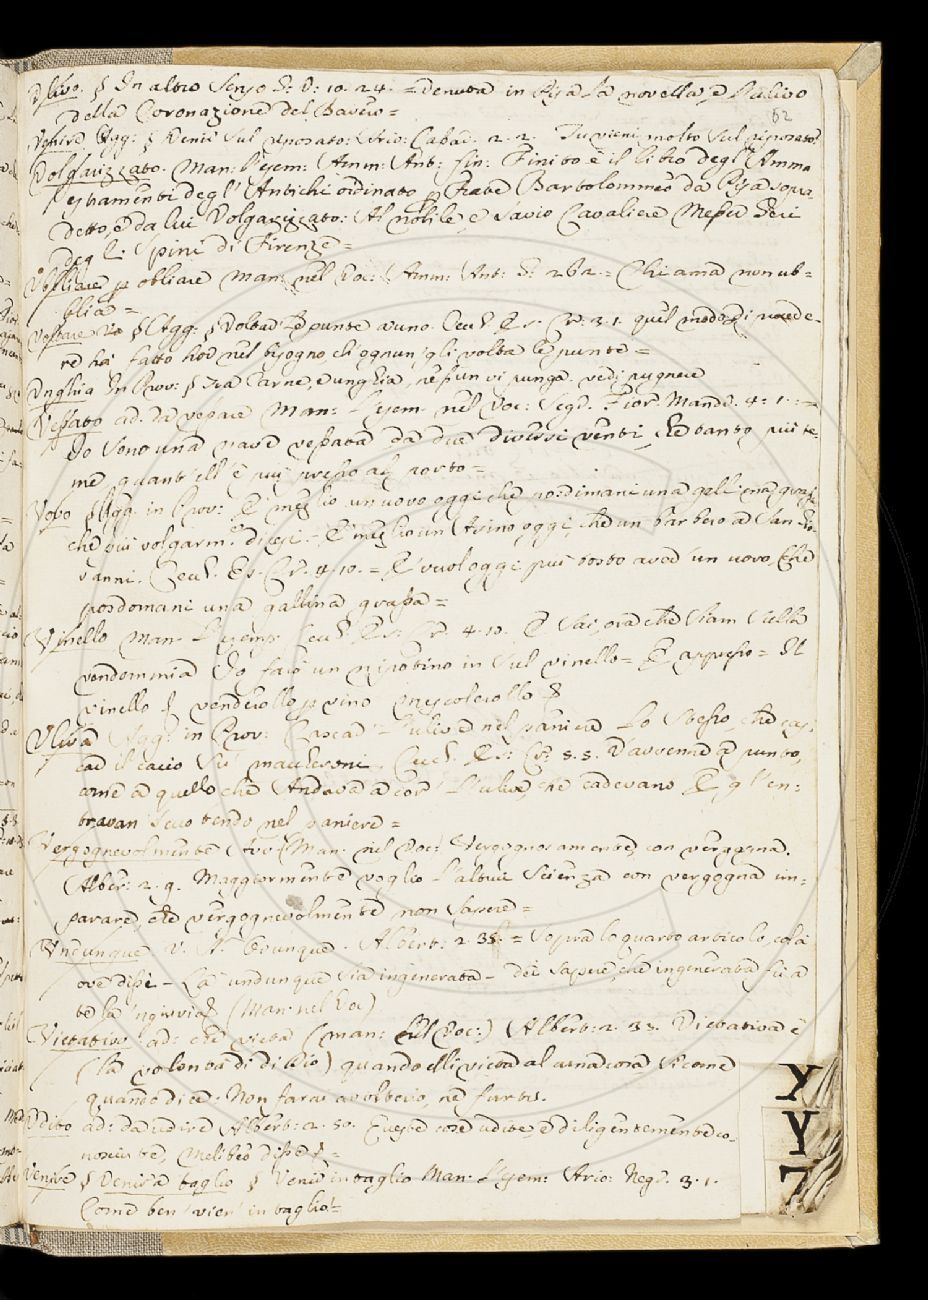 Ulivo. § In altro Senso D: V: 10. 24. = Venuta in Pisa la novella, e l'ulivo
82
della Coronazione del Bavero =
Venire Agg: § Venir sul riposato: Ario: Cassar. 2. 2. Tu vieni molto sul riposato
Volgarizzato. Man: l'esem: Amm: Ant: fin: Finito è il libro degl' Amma
estramenti degl' Antichi ordinato p Frate Bartolommeo da Pisa sopra
detto, e da lui Volgarizzato: Al nobile, e Savio Cavaliere Messer Neri
degl: Spini di Firenze =
Ubbliare p obliare Man: nel Voc: Amm: Ant: D: 262 = Chi ama non ub=
blia =
Voltare § Agg: § Voltar le punte a uno. Cecch. Es. Cr: 3. 1. quel modo di procede-
re ha' fatto hor nel bisogno ch'ognun' gli volta le punte =
Unghia In Prov: § Tra Carne, e unghia, nessun vi punga. vedi pugnere
Vessato ad. da vessare Man: l'esem. nel Voc: Segr. Fior. Mandr. 4. 1. =
Io sono una nave vessata da due diversi venti, che tanto più te-
me quant' ell' è più presso al porto =
Vovo § Agg. in Prov: È meglio un uovo oggi che posdimani una gallina grassa
che più volgarm.e dicesi - È meglio un Asino oggi, che un barbero a San Gio-
vanni. Cecch. Es. Cr. 4. 10. = E' vuol oggi più tosto aver' un uovo, che
posdomani una gallina grassa =
Vinello Man. l'esemp. Cecch. Es. Cr. 4. 10. E sai, ora che siam sulla
vendemmia Io farò un pisolino in sul vinello = E appresso = Il
vinello § venderollo p vino mescolerollo §
Uliva Agg: in Prov: Cascar l'uliva nel paniere Lo stesso, che cas-
car il cacio su' maccheroni. Cecch. Es: Cr: 5. 5. L'avvenne a punto,
come a quello che Andava a cor' l'ulive, che cadevano E gl' en-
travan' scuotendo nel paniere =
Vergognevolmente Avv. (Man: nel Voc: Vergognosamente, con vergogna.
Alber: 2. 9. Maggiormente voglio l'altrui Scienza con vergogna im-
parare che vergognevolmente non sapere =
Undunque V. A. Ovunque. Albert: 2. 35. = Sopra lo quarto articolo, colà
ove disse - La undunque sia ingenerata - dei sapere, che ingenerata fu a
te la ngiuria (Man: nel Voc)
Vietativo ad: che vieta (man: nel Voc:) Albert: 2. 33. Vietativa è
(la volontà di Dio) quando elli vieta alcuna cosa sicome
quando dice: Non farai avolterio, nè furto.
Udito ad: da udire Albert: 2. 50. Queste cose udite, e diligentemente co-
nosciute, Melibeo disse =
Venire § Venire in taglio § Venir in taglio Man: l'esem: Ario: Negr. 3. 1.
Come ben' vien' in taglio! =
Y
Y
Z